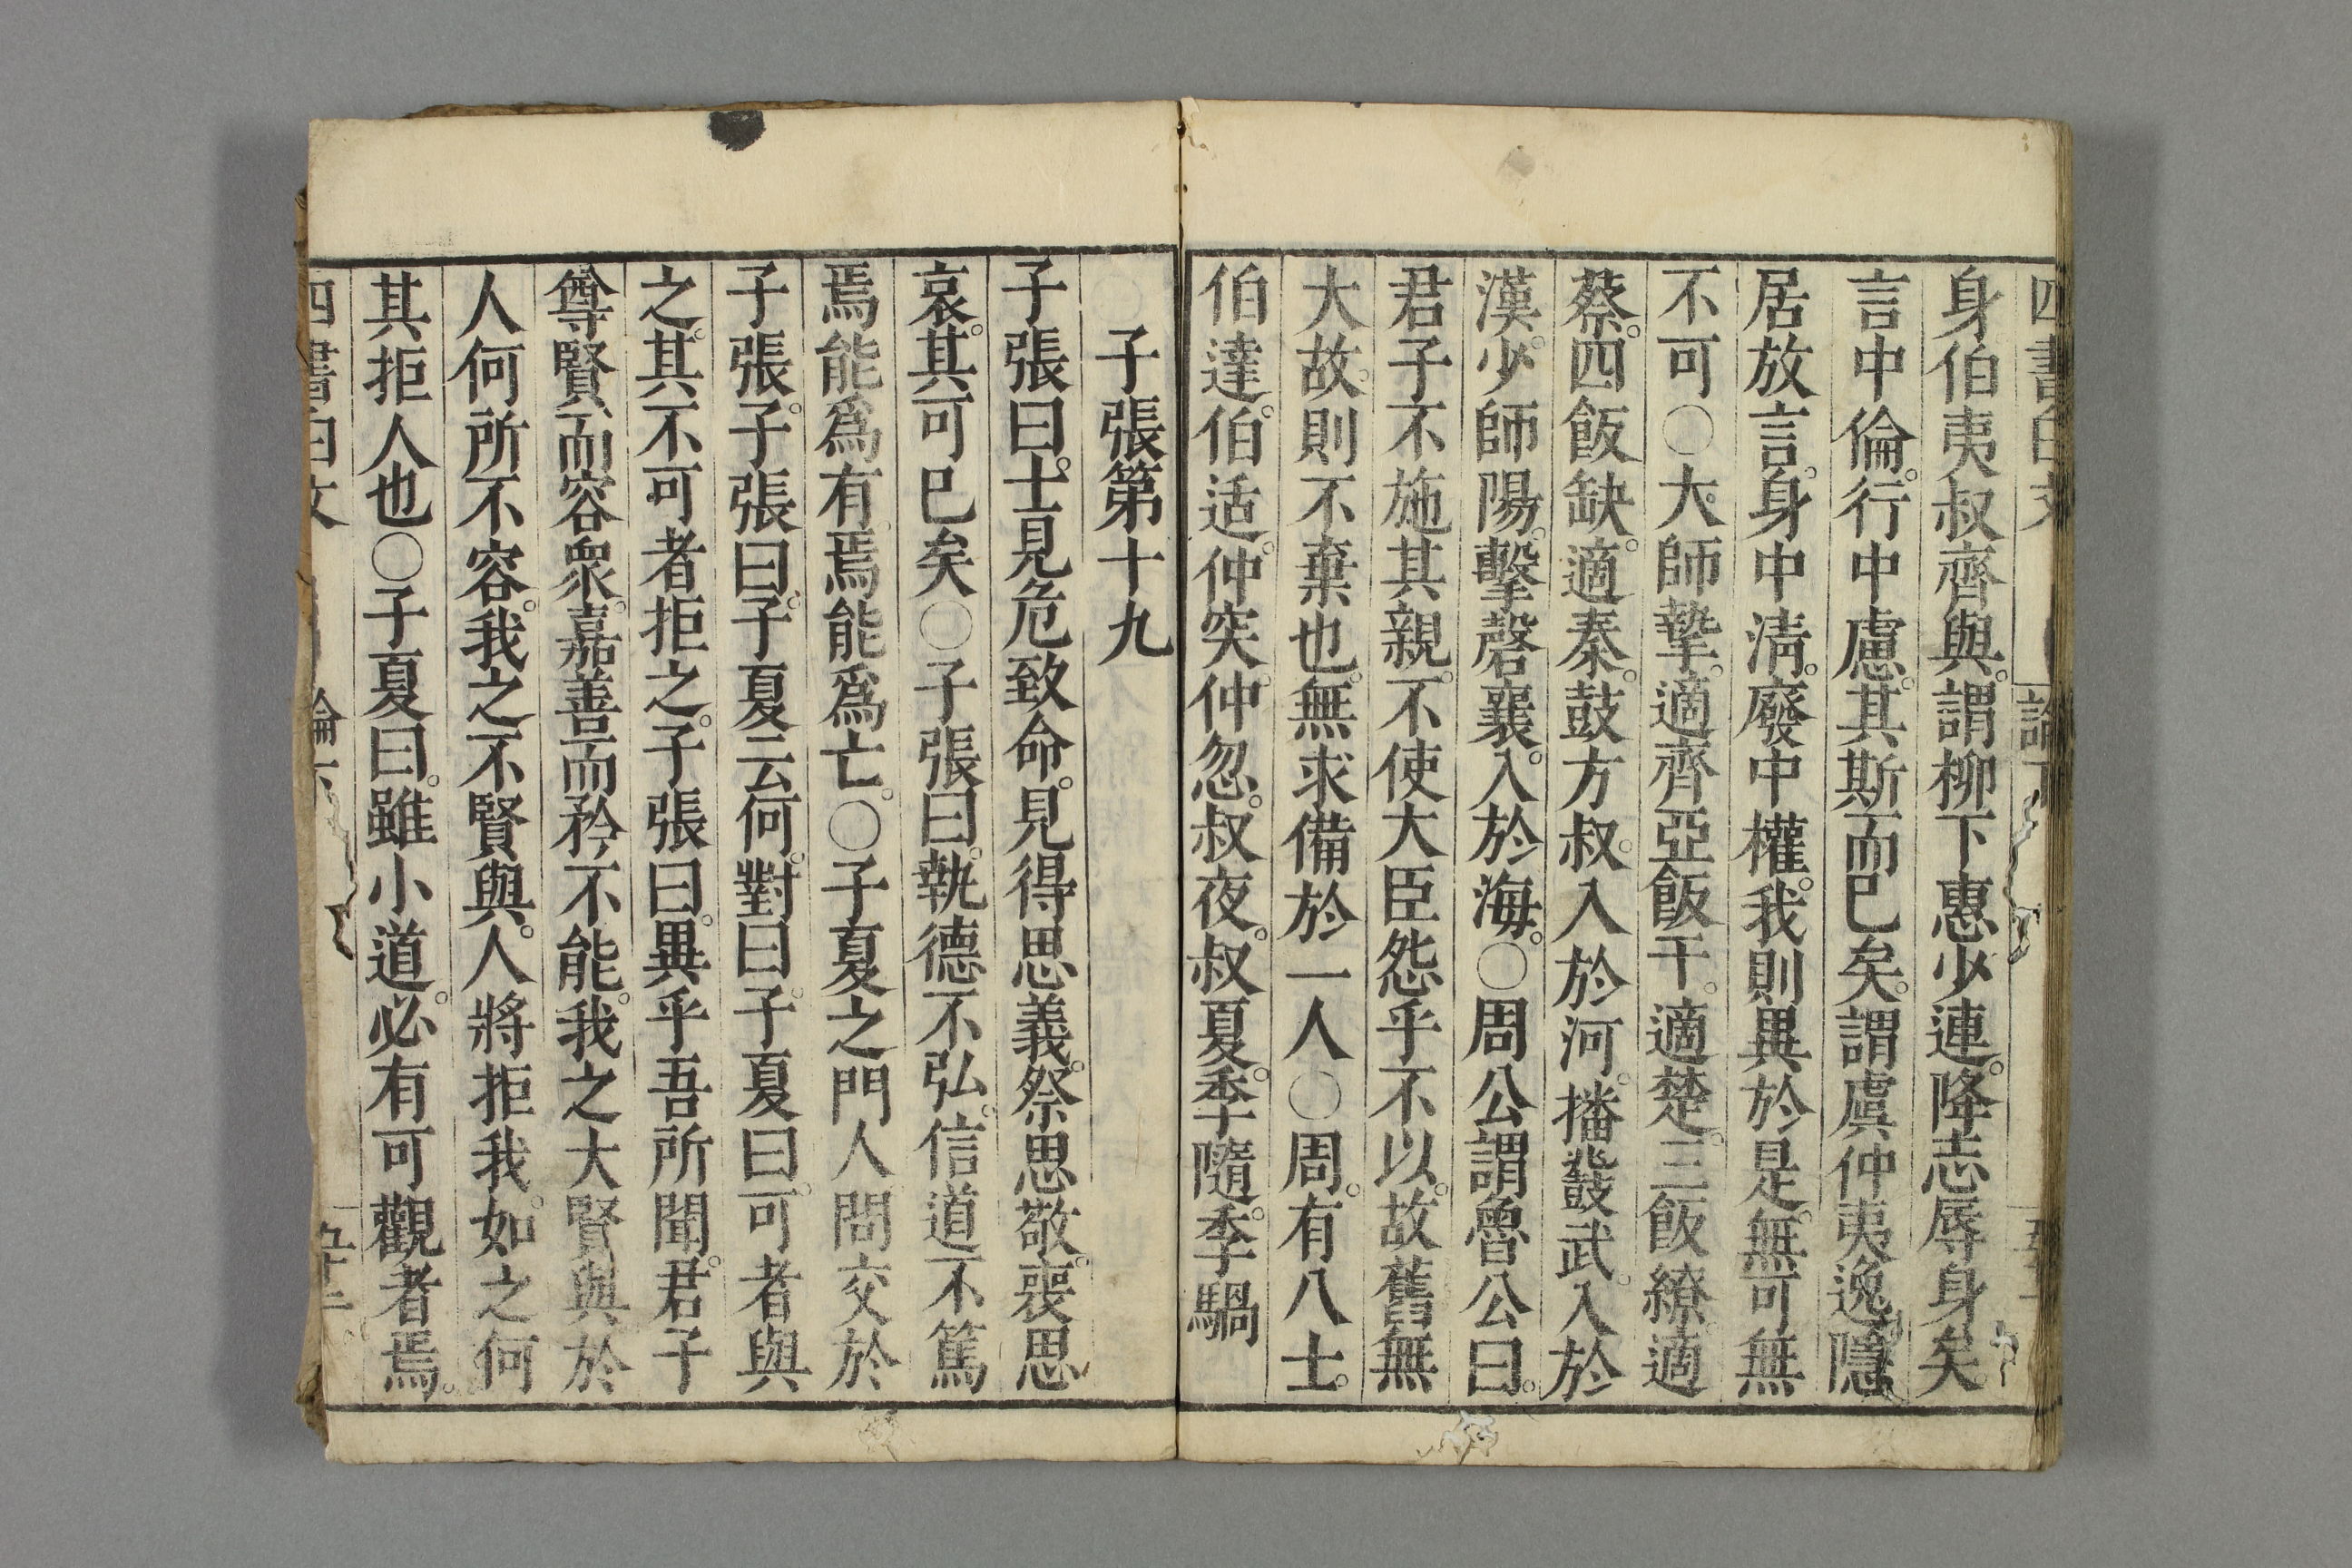 四書白文 論下 五十一
身伯夷叔齊與。謂柳下惠少連。降志辱身矣
言中倫。行中慮。其斯而巳矣。謂虞仲夷逸隱
居放言。身中清。廢中權。我則異於是。無可無
不可〇大師摯。適齊亞飯干。適楚。三飯繚。適
蔡。四飯缺。適秦。鼓方叔。入於河。播鼗武。入於
漢。少師陽。擊磬襄。入於海。〇周公謂魯公曰。
君子不施其親。不使大臣怨乎不以。故舊無
大故。則不棄也。無求備於一人〇周。有八士。
伯達。伯适。仲突。仲忽。叔夜。叔夏。季隨。季騧
子張第十九
子張曰。士見危致命。見得思義。祭思敬。喪思
哀。其可巳矣〇子張曰。執德不弘。信道不篤
焉能爲有。焉能爲亡。〇子夏之門人問交於
子張。子張曰。子夏云何。對曰。子夏曰。可者與
之。其不可者拒之。子張曰。異乎吾所聞。君子
尊賢而容衆。嘉善而矜不能。我之大賢與於
人何所不容。我之不賢與。人將拒我。如之何
其拒人也〇子夏曰。雖小道。必有可觀者焉。
四書白文 論下 五十二